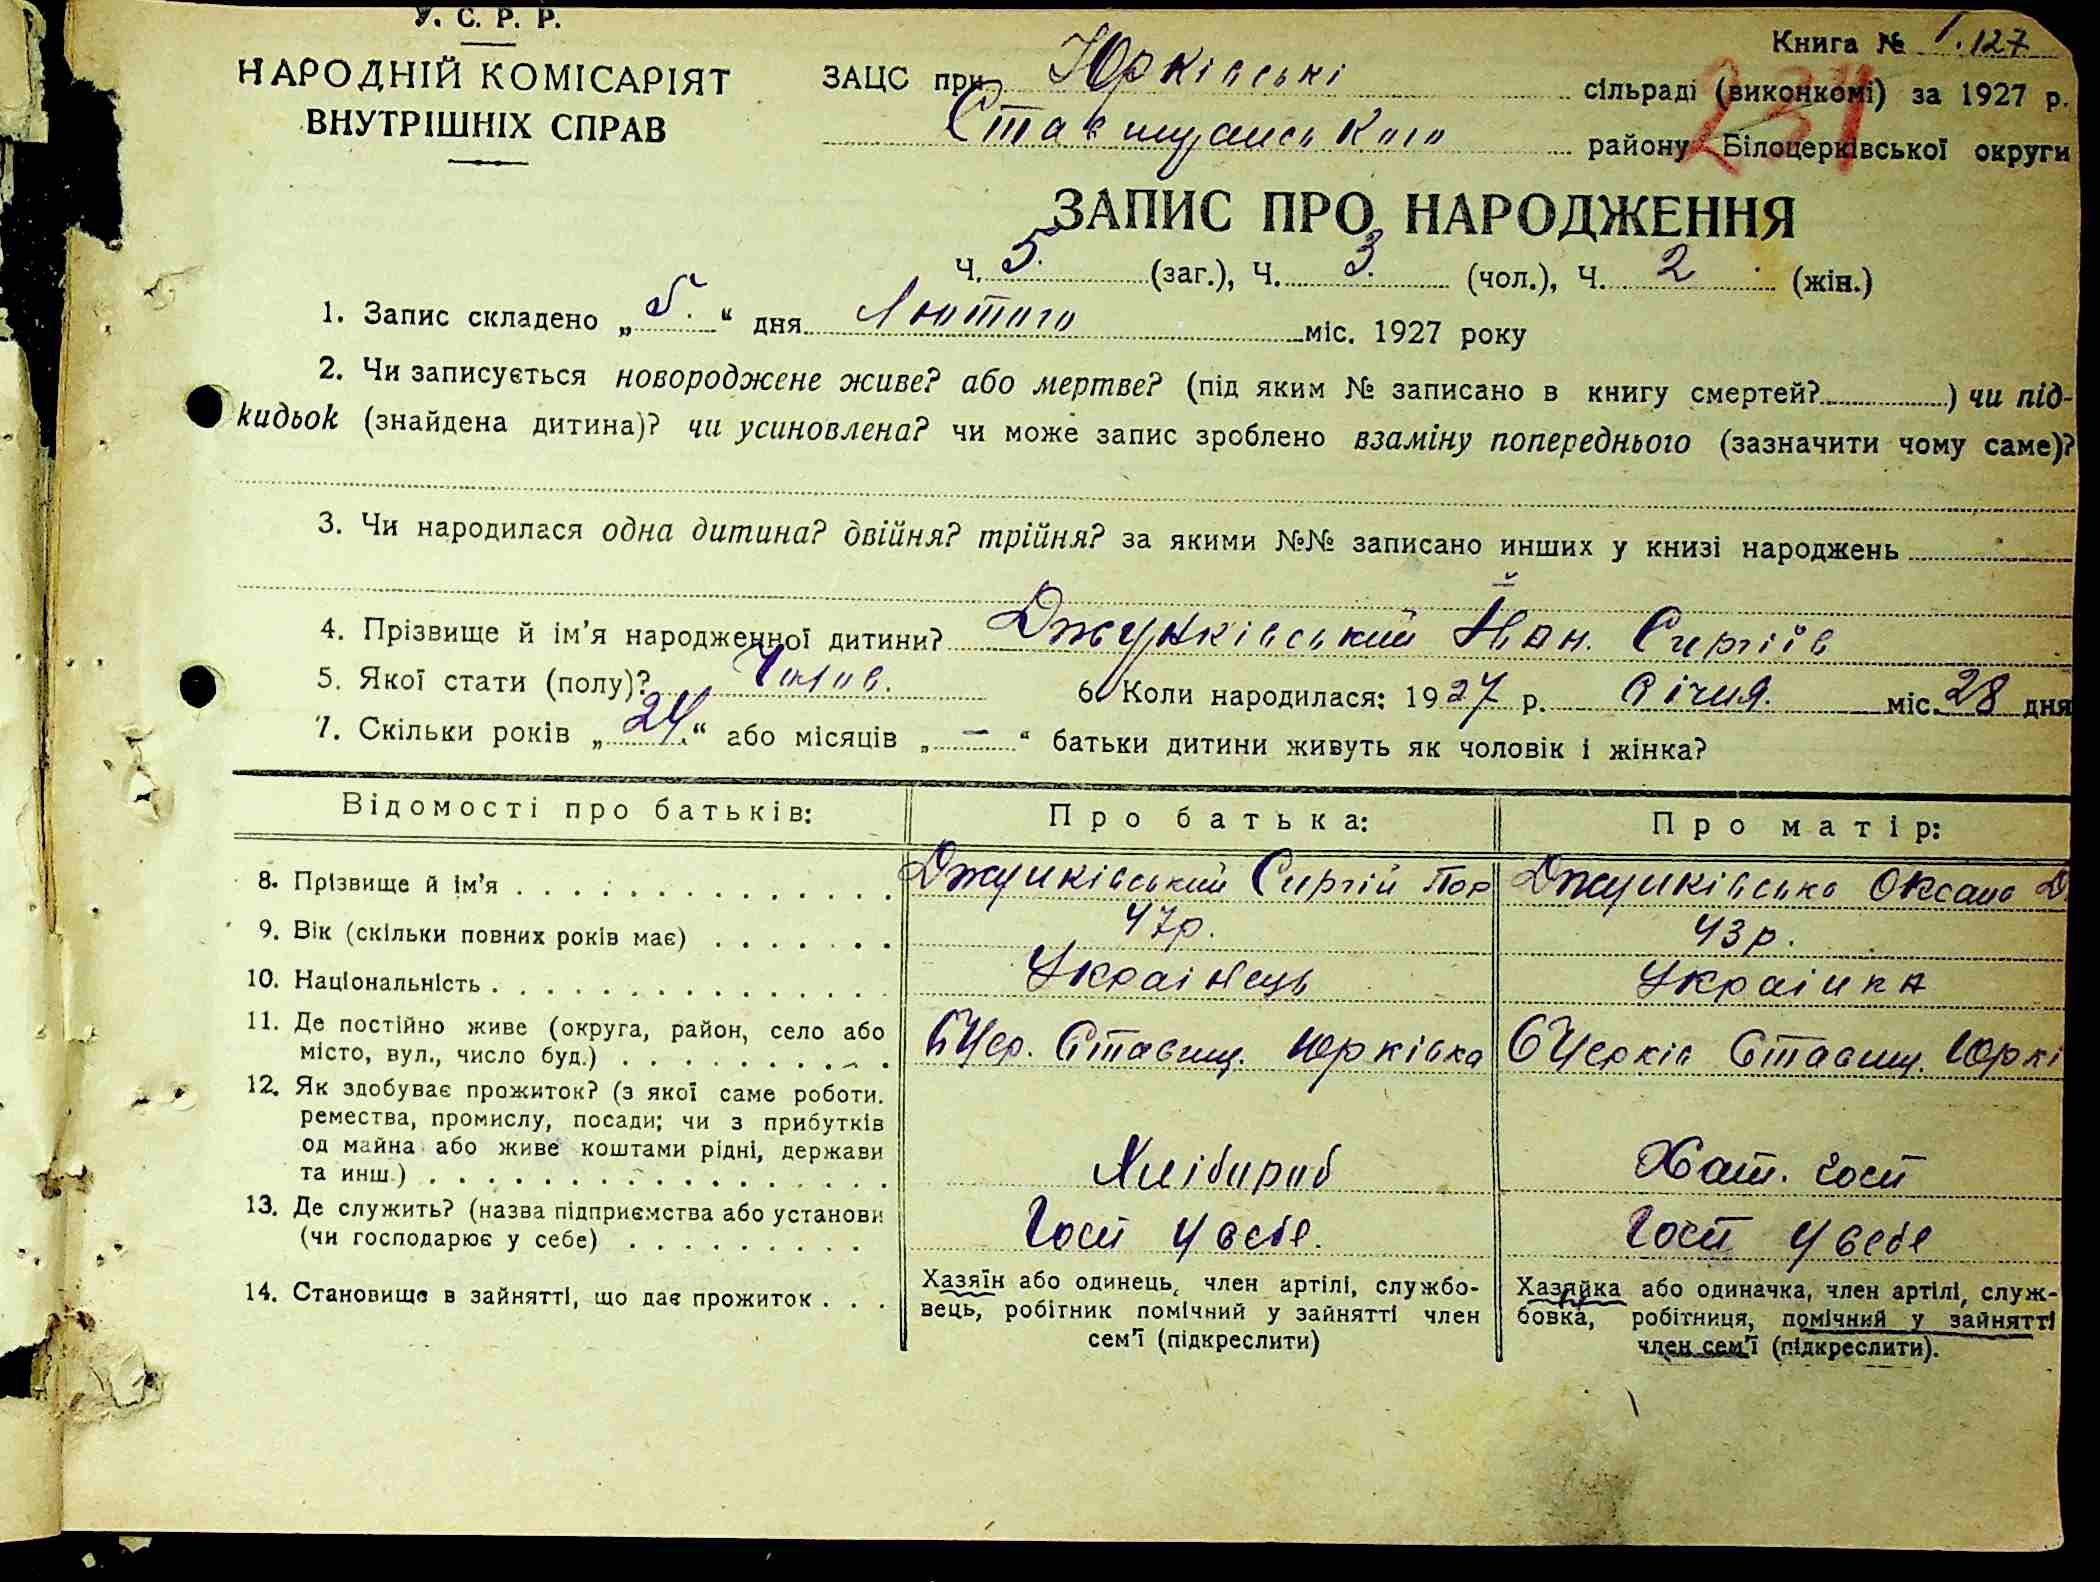 У. С. Р. Р.
НАРОДНІЙ КОМІСАРІЯТ
ВНУТРІШНІХ СПРАВ
Книга № 1.127
ЗАЦС при Юрківські сільраді (виконкомі) за 1927 р.
231
Ставищанського району Білоцерківської округи
ЗАПИС ПРО НАРОДЖЕННЯ
Ч. 5. (заг.), Ч. 3. (чол.), Ч. 2 (жін.)
1. Запис складено „5.“ дня Лютого міс. 1927 року
2. Чи записується новороджене живе? або мертве? (під яким № записано в книгу смертей?) чи під-
кидьок (знайдена дитина)? чи усиновлена? чи може запис зроблено взаміну попереднього (зазначити чому саме)?
3. Чи народилася одна дитина? двійня? трійня? за якими №№ записано инших у книзі народжень
4. Прізвище й ім’я народженної дитини? Джунківський Іван. Сергіїв
5. Якої стати (полу)? Чолов. 6. Коли народилася: 1927 р. Січня. міс. 28 дня
7. Скільки років „24.“ або місяців „–“ батьки дитини живуть як чоловік і жінка?
Відомості про батьків: Про батька: Про матір:
8. Прізвище й ім’я Джунківський Сергій Пор Джунківська Оксана Д
9. Вік (скільки повних років має) 47р. 43р.
10. Національність Українець Українка
11. Де постійно живе (округа, район, село або
місто, вул., число буд.) БЦер. Ставищ. Юрківка БЦерків Ставищ. Юркі
12. Як здобуває прожиток? (з якої саме роботи.
ремества, промислу, посади; чи з прибутків
од майна або живе коштами рідні, держави
та инш.) Хлібороб Хат. Госп
13. Де служить? (назва підприємства або установи
(чи господарює у себе) Госп у себе. Госп у себе
14. Становище в зайнятті, що дає прожиток
Хазяїн або одинець, член артілі, службо-
вець, робітник помічний у зайнятті член
сем’ї (підкреслити)
Хазяйка або одиначка, член артілі, служ-
бовка, робітниця, помічний у зайнятті
член сем’ї (підкреслити).